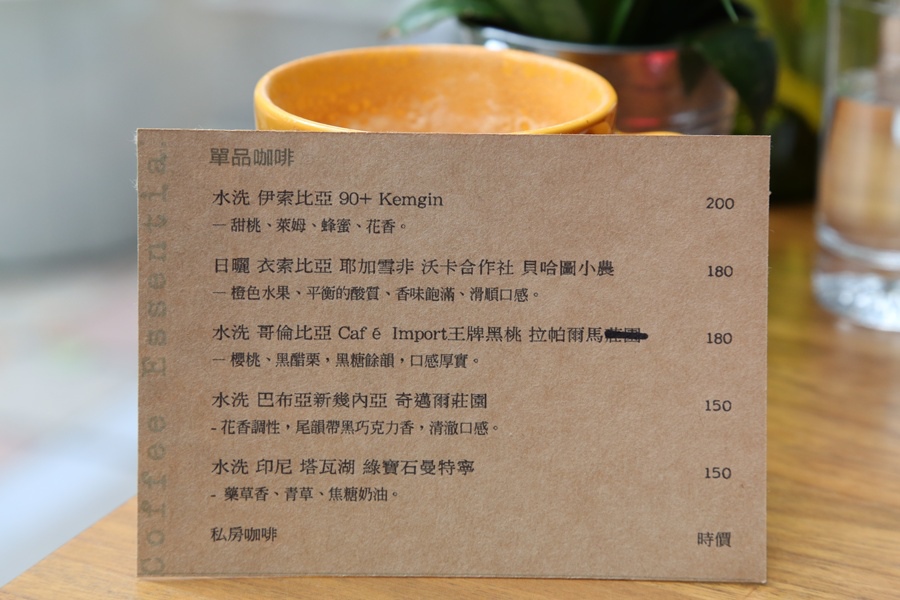 單品咖啡
水洗 伊索比亞 90+ Kemgin 200
— 甜桃、萊姆、蜂蜜、花香。
日曬 衣索比亞 耶加雪非 沃卡合作社 貝哈圖小農 180
— 橙色水果、平衡的酸質、香味飽滿、滑順口感。
水洗 哥倫比亞 Caf é Import王牌黑桃 拉帕爾馬莊園 180
— 櫻桃、黑醋栗，黑糖餘韻，口感厚實。
水洗 巴布亞新幾內亞 奇邁爾莊園 150
- 花香調性，尾韻帶黑巧克力香，清澈口感。
水洗 印尼 塔瓦湖 綠寶石曼特寧 150
- 藥草香、青草、焦糖奶油。
私房咖啡 時價
Coffee Essential